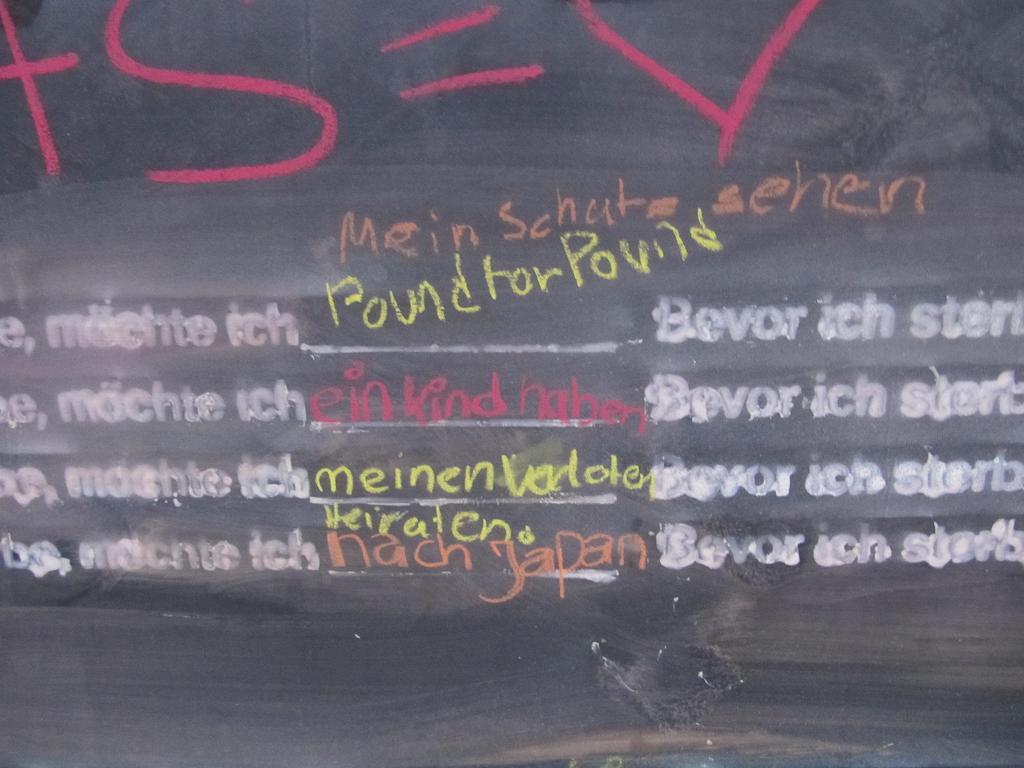 +S=V
Mein Schatz sehen
Pound for Pound
e, möchte ich Bevor ich sterb
be, möchte ich ein Kind haben Bevor ich sterb
be, möchte ich meinen Verlobten Bevor ich sterb
Heiraten.
be, möchte ich nach Japan Bevor ich sterb